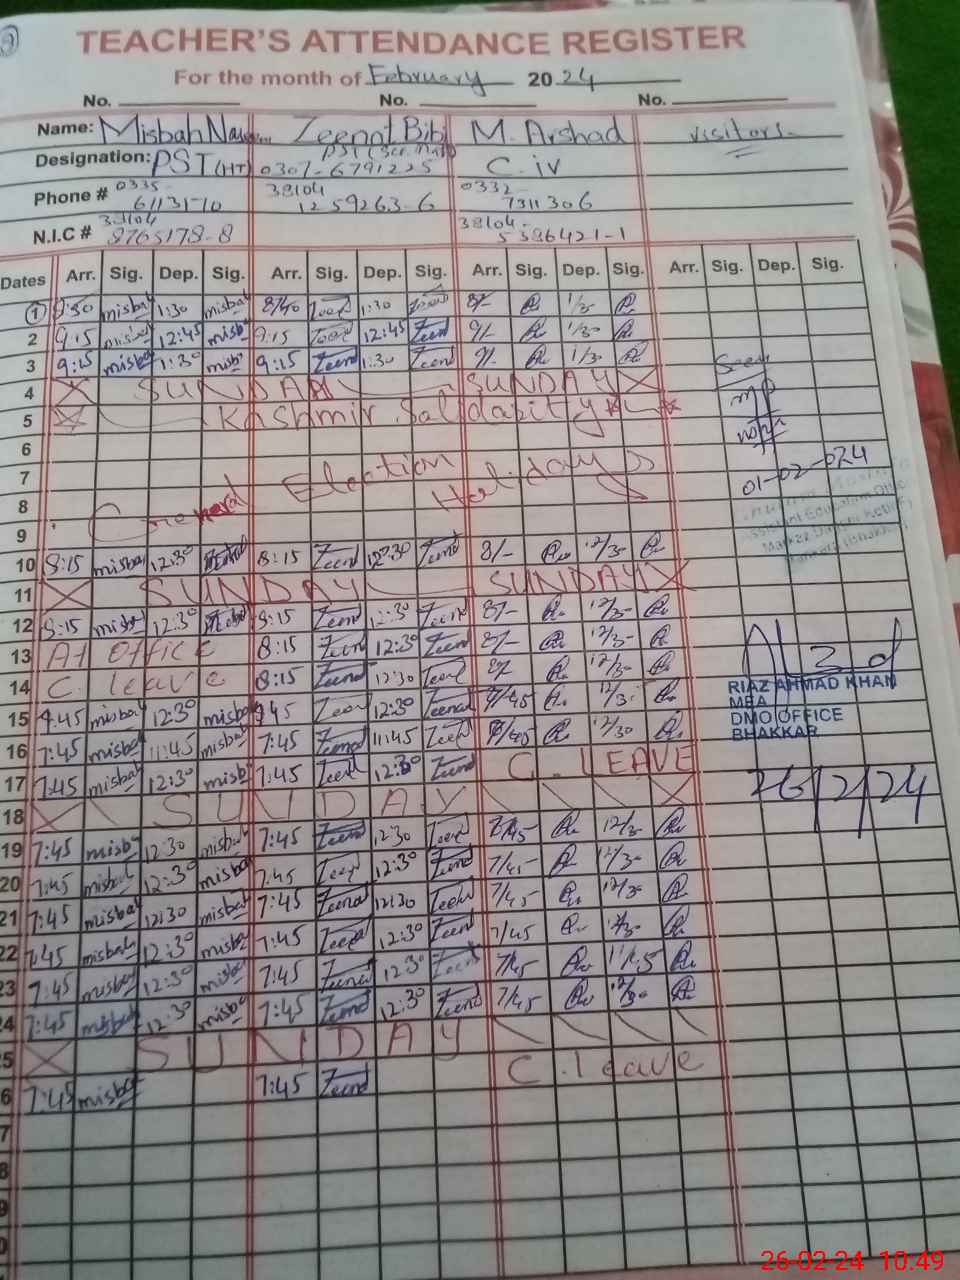 TEACHER'S ATTENDANCE REGISTER
For the month of February 2024
No. No. No.
Name: Misbah Zeenat Bibi M. Arshad visitors
Designation: PST (HT) PST C. iv
Phone # 0335- 0307-6791225 0332- 7311306
N.I.C # 38104 8765178-8 38104 1259263-6 38104- 5386421-1
Dates Arr. Sig. Dep. Sig. Arr. Sig. Dep. Sig. Arr. Sig. Dep. Sig. Arr. Sig. Dep. Sig.
1 misbah 1:30 misbah 8/40 Zeenat 1:30 Zeenat 8/-
2 9:15 misbah 12:45 misbah 9:15 Zeenat 12:45 Zeenat 9/-
3 9:15 misbah 1:30 misbah 9:15 Zeenat 1:30 Zeenat 9/-
4 SUNDAY SUNDAY Seen
5 Kashmir Salidabity
6
7 General Election Holidays 01-02-024
8
9
10 8:15 misbah 12:30 8:15 Zeenat 12:30 Zeenat 8/- 12/30
11 SUNDAY SUNDAY
12 8:15 misbah 12:30 8:15 Zeenat 12:30 Zeenat 8/- 12/30
13 At office 8:15 Zeenat 12:30 Zeenat 8/- 12/30
14 C. leave 8:15 Zeenat 12:30 Zeenat 8/- 12/30
RIAZ AHMAD KHAN
MEA
DMO OFFICE
BHAKKAR
15 misbah 12:30 misbah Zeenat 12:30 Zeenat 12/30
16 7:45 misbah 11:45 misbah 7:45 Zeenat 11:45 Zeenat 12/30
17 7:45 misbah 12:30 misbah 7:45 Zeenat 12:30 Zeenat C. LEAVE
26/2/24
18 SUNDAY
19 7:45 misbah 12:30 misbah 7:45 Zeenat 12:30 Zeenat 7/45 12/30
20 7:45 misbah 12:30 misbah 7:45 Zeenat 12:30 Zeenat 7/45 12/30
21 7:45 misbah 12:30 misbah 7:45 Zeenat 12:30 Zeenat 7/45 12/30
22 7:45 misbah 12:30 misbah 7:45 Zeenat 12:30 Zeenat 7/45
23 7:45 misbah 12:30 misbah 7:45 Zeenat 12:30 Zeenat 7/45
24 7:45 misbah 12:30 misbah 7:45 Zeenat 12:30 Zeenat 7/45
5 SUNDAY
6 7:45 misbah 7:45 Zeenat C. leave
7
8
9
0
26-02-24 10:49